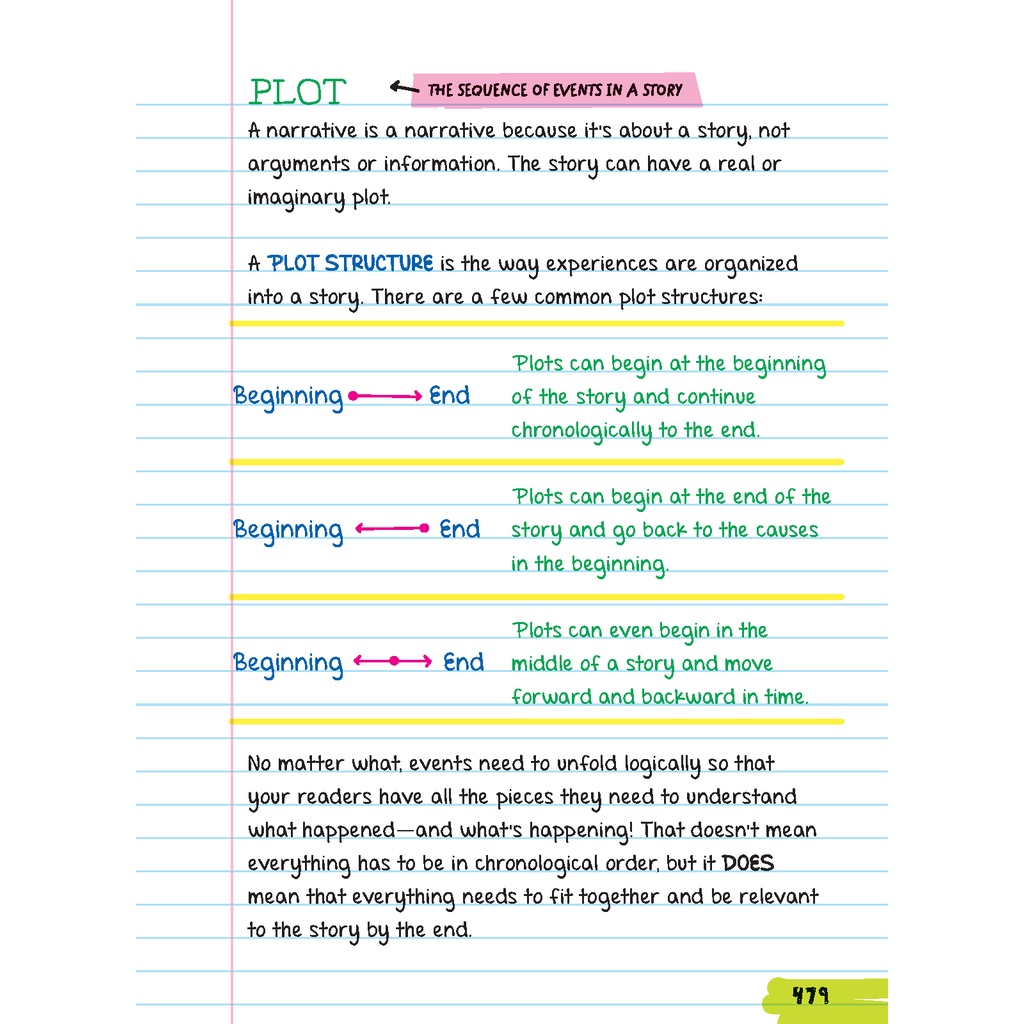 PLOT
THE SEQUENCE OF EVENTS IN A STORY
A narrative is a narrative because it's about a story, not
arguments or information. The story can have a real or
imaginary plot.
A PLOT STRUCTURE is the way experiences are organized
into a story. There are a few common plot structures:
Beginning End
Plots can begin at the beginning
of the story and continue
chronologically to the end.
Beginning End
Plots can begin at the end of the
story and go back to the causes
in the beginning.
Beginning End
Plots can even begin in the
middle of a story and move
forward and backward in time.
No matter what, events need to unfold logically so that
your readers have all the pieces they need to understand
what happened—and what's happening! That doesn't mean
everything has to be in chronological order, but it DOES
mean that everything needs to fit together and be relevant
to the story by the end.
479